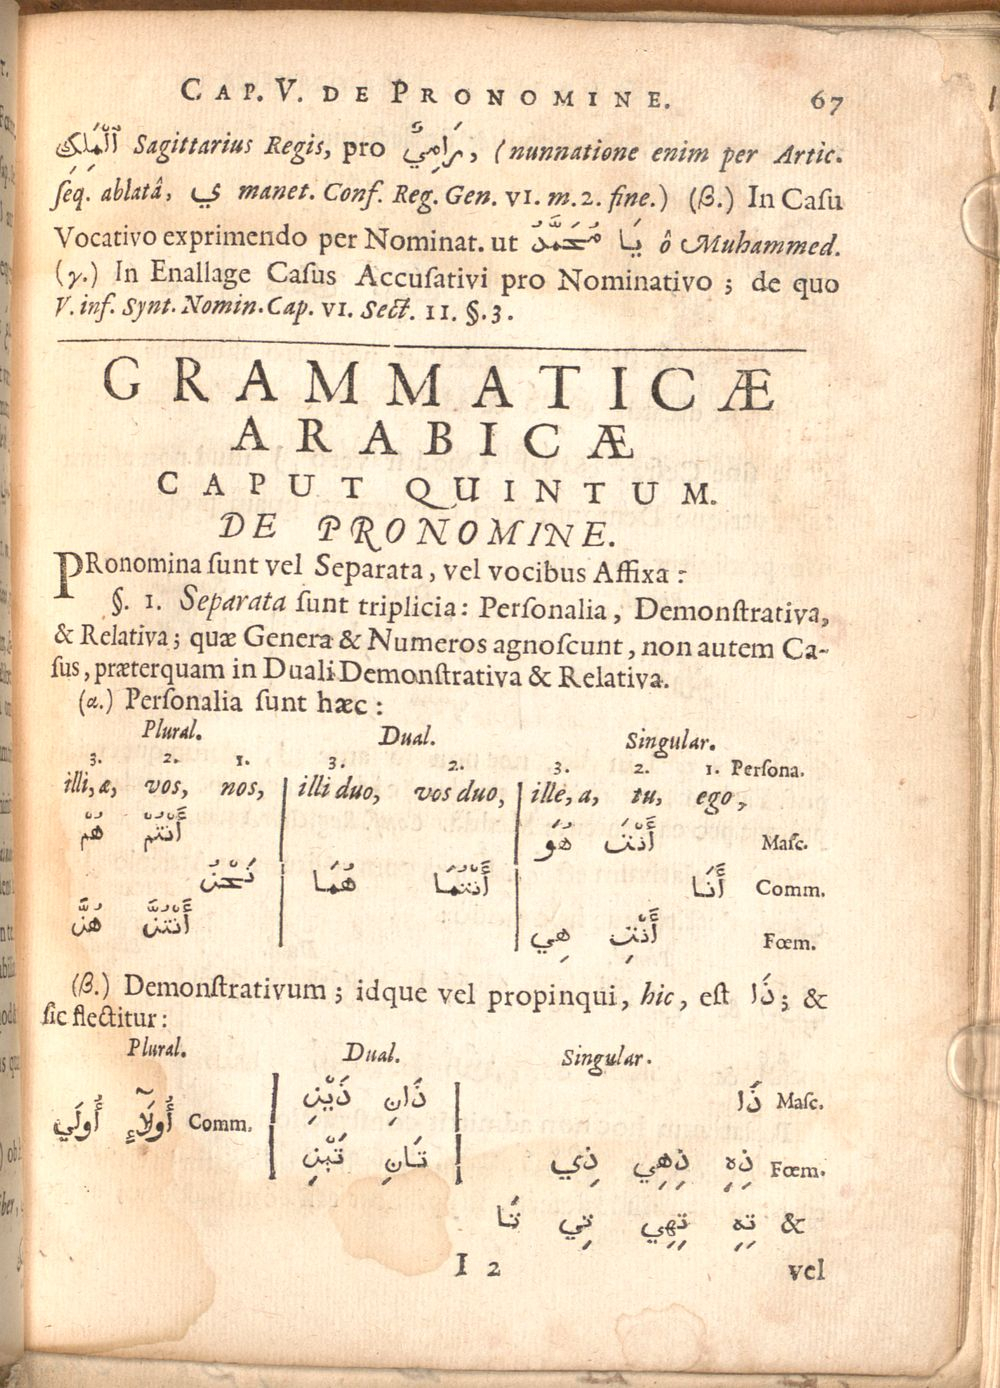 CAP. V. DE PRONOMINE. 67
اَلْمَلِكِ Sagittarius Regis, pro رَامِيٌ, (nunnatione enim per Artic.
ſeq. ablatâ, ي manet. Conf. Reg. Gen. VI. m. 2. fine.) (β.) In Caſu
Vocativo exprimendo per Nominat. ut يَا مُحَمَّدُ ô Muhammed.
(γ.) In Enallage Caſus Accuſativi pro Nominativo; de quo
V. inf. Synt. Nomin. Cap. VI. Sect. II. §. 3.
GRAMMATICÆ
ARABICÆ
CAPUT QUINTUM.
DE PRONOMINE.
PRonomina ſunt vel Separata, vel vocibus Affixa:
§. 1. Separata ſunt triplicia: Perſonalia, Demonſtrativa,
& Relativa; quæ Genera & Numeros agnoſcunt, non autem Ca-
ſus, præterquam in Duali Demonſtrativa & Relativa.
(α.) Perſonalia ſunt hæc:
Plural. Dual. Singular.
3. 2. 1. 3. 2. 3. 2. 1. Perſona.
illi, æ, vos, nos, illi duo, vos duo, ille, a, tu, ego,
هُمْ أَنْتُمْ هُوَ أَنْتَ Maſc.
نَحْنُ هُمَا أَنْتُمَا أَنَا Comm.
هُنَّ أَنْتُنَّ هِي أَنْتِ Fœm.
(β.) Demonſtrativum; idque vel propinqui, hic, eſt ذَا; &
ſic flectitur:
Plural. Dual. Singular.
ذَيْنِ ذَانِ ذَا Maſc.
أُولَي أُولَآءِ Comm.
تَيْنِ تَانِ ذِي ذِهِي ذِهِ Fœm.
تَا تِي تِهِي تِهِ &
I 2 vel